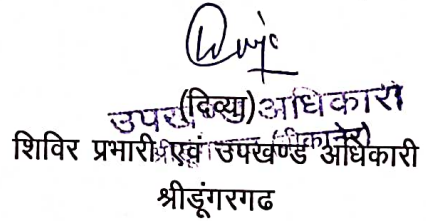 (दिव्या)
उपखण्ड अधिकारी
शिविर प्रभारी एवं उपखण्ड अधिकारी
श्रीडूंगरगढ